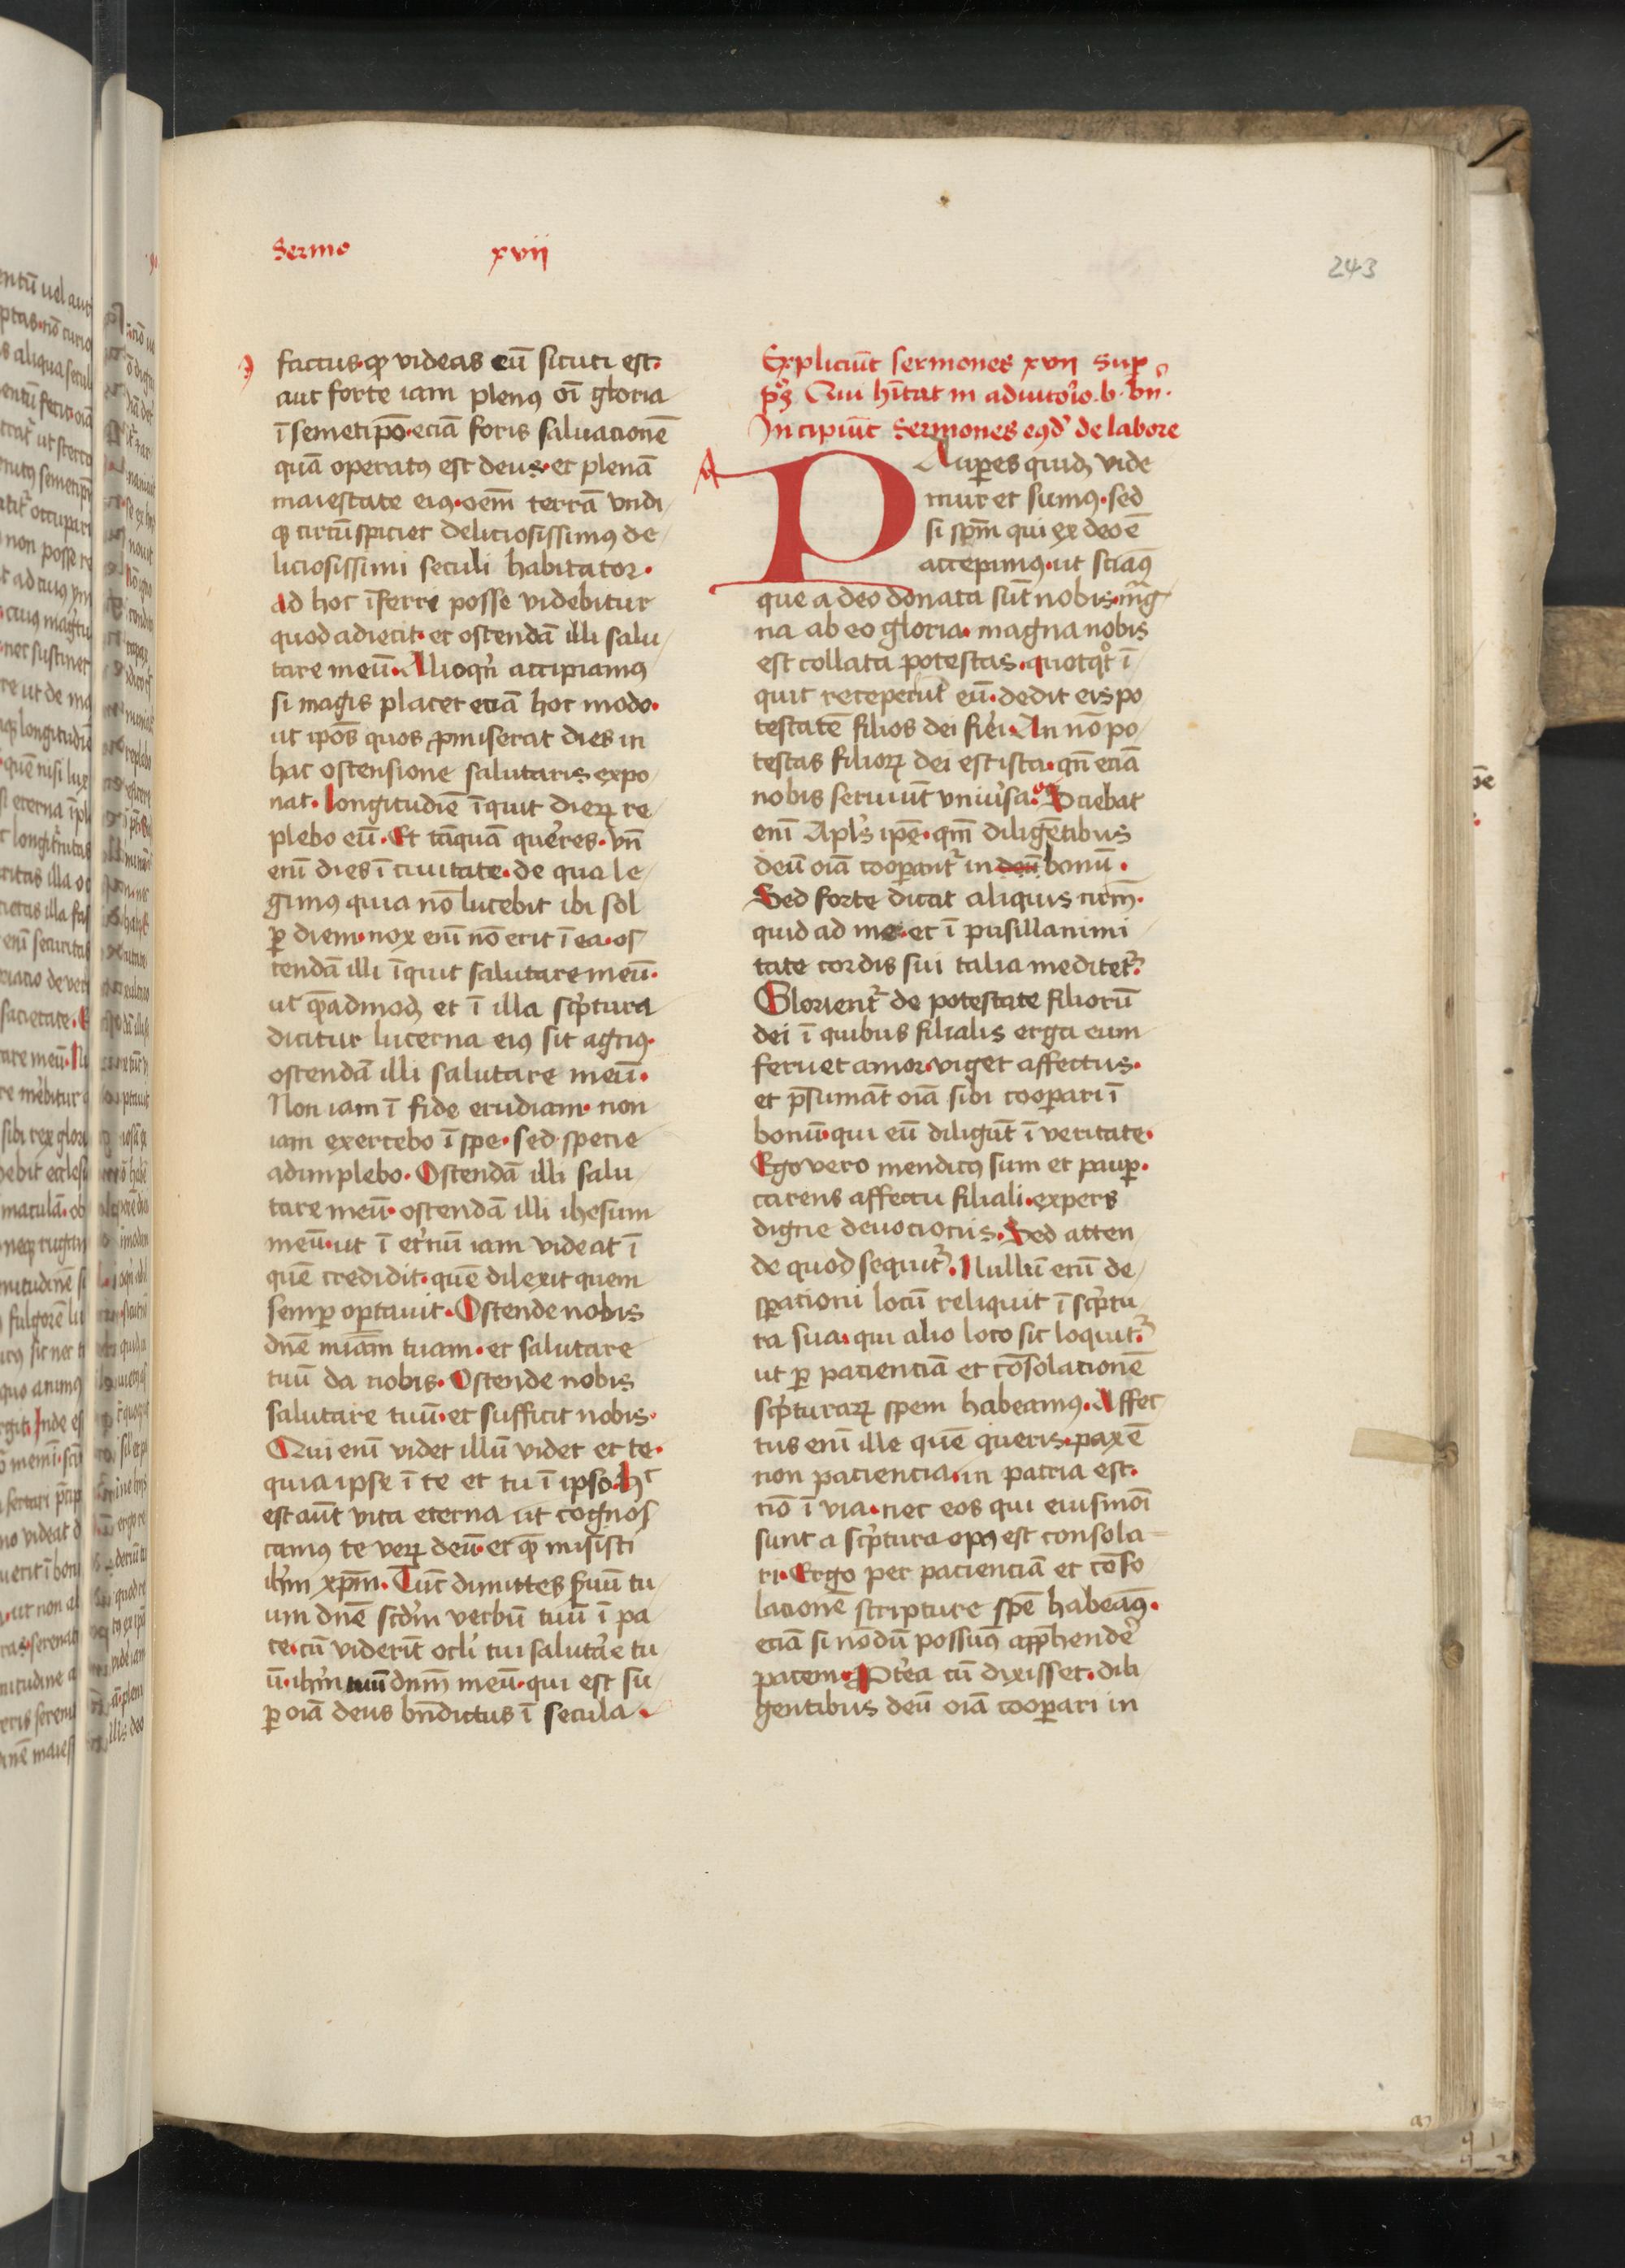 Sermo xvii
243
factus · qꝫ videas eū sicuti est ·
aut forte iam plenꝰ oī gloria
ī semetipō · eciā foris saluacionē
quā operatꝰ est deus · et plenā
maiestate eiꝰ · oēm terrā vndi
qꝫ circūspiciet deliciosissimꝰ de
liciosissimi seculi habitator ·
ad hoc īferre posse videbitur
quod adiecit · et ostendā illi salu
tare meū · Alioqn̄ accipiamꝰ
si magis placet eciā hoc modo ·
ut ipōs quos ꝓmiserat dies in
hac ostensione salutaris expo
nat · longitudiē īquit dierꝝ re
plebo eū · Et tāquā quer̓es · vn̄
enī dies ī ciuitate · de qua le
gimꝰ quia nō lucebit ibi sol
ꝑ diem · nox enī nō erit ī ea · os
tendā illi īquit salutare meū ·
ut qēadmodꝫ et ī illa scp̄tura
dicitur lucerna eiꝰ sit agnꝰ ·
ostendā illi salutare meū ·
Non iam ī fide erudiam · non
iam exercebo ī spe · sed specie
adimplebo · Ostendā illi salu
tare meū · ostendā illi ihesum
meū · ut ī et̓nū iam videat ī
quē credidit · quē dilexit quem
semꝑ optauit · Ostende nobis
dn̄e miām tuam · et salutare
tuū da nobis · Ostende nobis
salutare tuū · et sufficit nobis ·
Qui enī videt illū videt et te ·
quia ipse ī te et tu ī ipso · hᶜ
est aūt vita eterna ut cognos
camus te verꝝ deū · et quē misisti
ihm̄ xpm̄ · Tūc dimittes ẜuū tu
um dn̄e scdm̄ verbū tuū ī pa
ce · cū viderīt ocl̓i tui salutar̓e tu
ū · ihm̄ tuū dnm̄ meū · qui est su
ꝑ oīā deus bn̄dictus ī secula ·
Expliciūt sermones xvii sup̄
p̄s Qui hītat in adiutōio · b · bn̄ ·
Incipiūt Sermones eꝰdē de labore
A
PAuꝑes quidꝫ vide
mur et sumꝰ · sed
si spm̄ qui ex deo ē
accepimꝰ · ut sciāꝰ
que a deo donata sūt nobis · mag
na ab eo gloria · magna nobis
est collata potestas · quotqͦt ī
quit receperūt eū · dedit eis po
testatē filios dei fier̓i · An nō po
testas filiorꝝ dei est ista · qn̄ eciā
nobis seruiūt vniu̓sa · Sciebat
enī Apl̓s ipē · qm̄ diligētibus
deū oīā cooꝑant᷑ in deū bonū ·
Sed forte dicat aliquis nr̄m ·
quid ad me · et ī pusillanimi
tate cordis sui talia meditet᷑ ·
Glorient᷑ de potestate filiorū
dei ī quibus filialis erga eum
feruet amor · viget affectus ·
et p̄sumāt oīā sibi cooꝑari ī
bonū · qui eū diligūt ī veritate ·
Ego vero mendicꝰ sum et pauꝑ ·
carens affectu filiali · expers
digne deuocionis · Sed atten
de quod sequit᷑ · Nullū enī de
sꝑationi locū reliquit ī scp̄tu
ra sua · qui alio loco sic loquit᷑ ·
ut ꝑ pacienciā et cōsolacionē
scp̄turarꝝ spem habeamꝰ · Affec
tus enī ille quē queris · pax ē
non paciencia · in patria est ·
nō ī via · nec eos qui eiusmōi
sunt a scp̄tura opꝰ est consola
ri · Ergo per pacienciā et cōso
lacionē scripture spē habeāꝰ ·
eciā si nōdū possuꝰ app̄hender̓
pacem · Pt̓ea cū dixisset · dili
gentibus deū oīā cooꝑari in